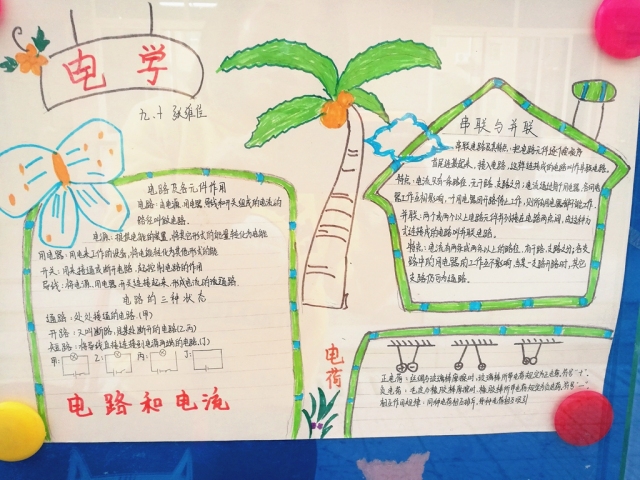 电学
九.十 张雅佳
电路及各元件作用
电路:由电源、用电器、导线和开关组成的电流的
路径叫做电路.
电源:提供电能的装置,将其它形式的能量转化为电能
用电器:用电来工作的设备,将电能转化为其他形式的能
开关:用来接通或断开电路,起控制电路的作用
导线:将电源、用电器、开关连接起来,形成电流的通道路.
电路的三种状态
通路:处处接通的电路(甲)
开路:又叫断路,某处断开的电路(乙丙)
短路:将导线直接连接到电源两端的电路(丁)
甲: 乙: 丙: 丁:
电路和电流
串联与并联
串联电路及其特点:把电路元件逐个按顺序
首尾连接起来,接入电路,这样连接成的电路叫作串联电路.
特点:电流只有一条路径,无干路、支路之分;电流通过每个用电器,各用电
器工作互相影响,一个用电器因开路停止工作,则所有用电器都不能工作.
并联:两个或两个以上电路元件并列接在电路两点间,由这种方
式连接成的电路叫作并联电路.
特点:电流有两条或两条以上的路径,有干路、支路之分;各支
路中的用电器的工作互不影响,当某一支路开路时,其它
支路仍可为通路.
电荷
正电荷:丝绸与玻璃棒摩擦时,玻璃棒所带电荷规定为正电荷,符号"+".
负电荷:毛皮与橡胶棒摩擦时,橡胶棒所带电荷规定为负电荷,符号"-".
相互作用规律:同种电荷相互排斥,异种电荷相互吸引